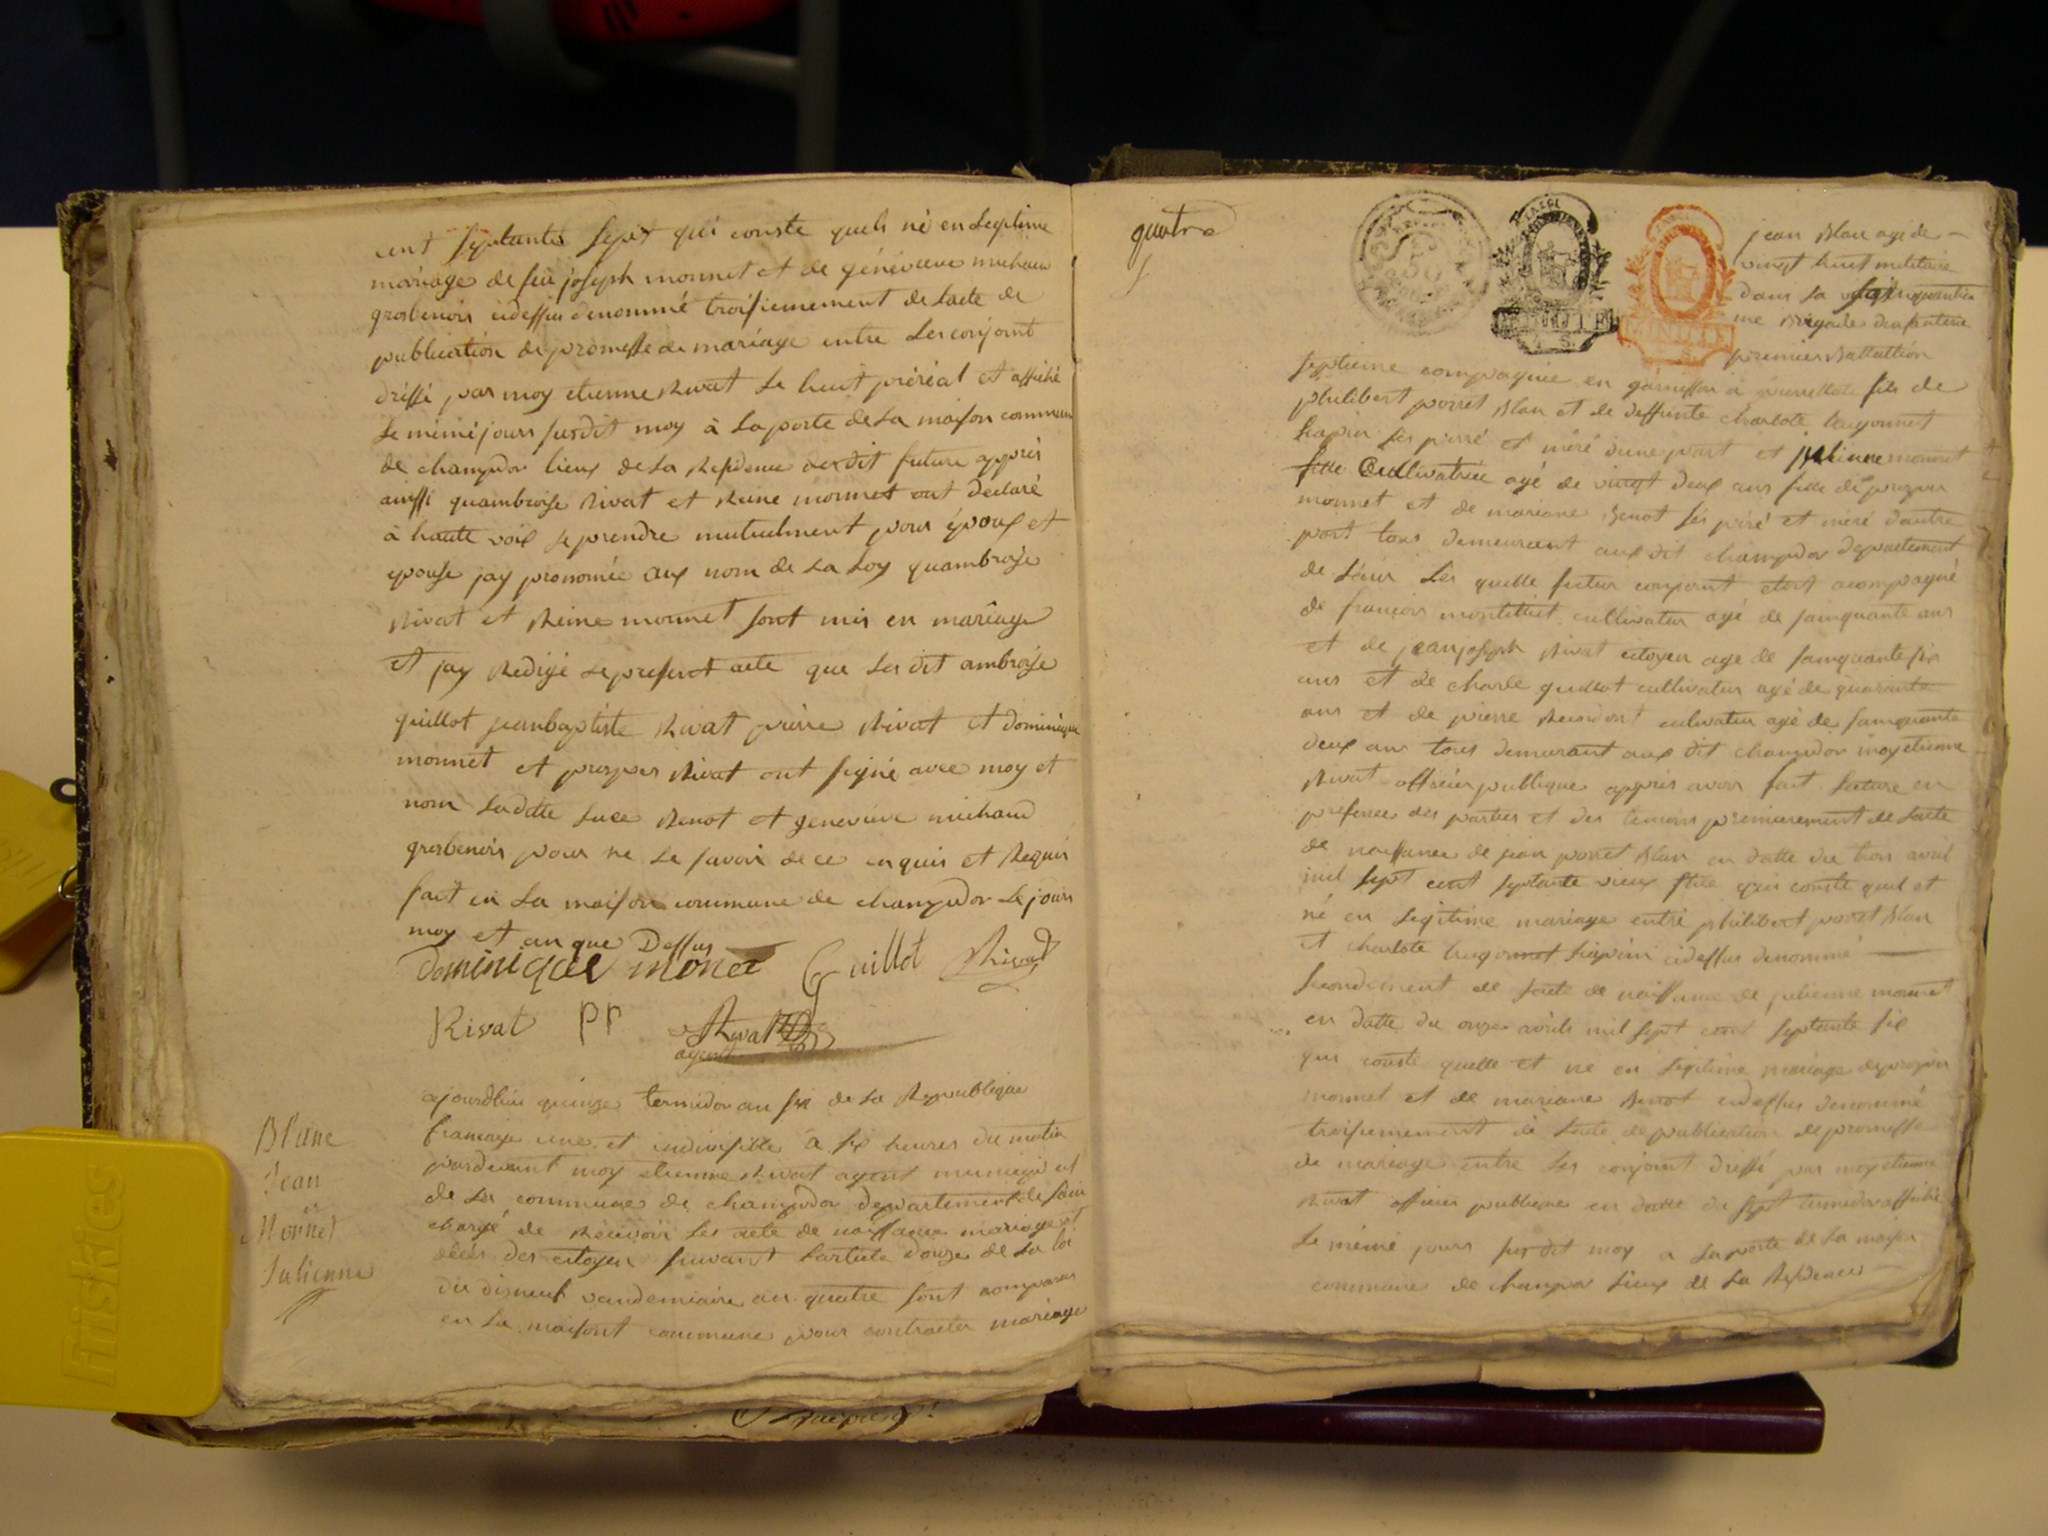 cent septantes sept qui conste quels né en legitime
mariage de feu joseph monnet et de généviéve michaux
grosbenois cidessus denommé troisiemement de lacte de
publication de promesse de mariage entre les conjoint
dréssé par moy etienne Rivat le huit préréal et affiché
le mémé jours susdit moy à la porte de la maison commune
de champdor lieux de la Residence desdit future apprés
ainssi quambroise Rivat et Reine monnet ont declaré
à haute voix se prendre mutuelment pour époux et
epouse jay pronomée aux nom de la Loy quambroise
Rivat et Reine monnet sont mis en mariage
et jay Redigé le present acte que les dit ambroise
guillot jeanbaptiste Rivat pierre Rivat et dominique
monnet et prosper Rivat ont signé avec moy et
nom laditte luce Benot et geneviéve michaud
grosbenois pour ne le savoir de ce enquis et Requis
fait en la maison commune de champdor le jours
moy et an que Dessus
dominique monet Guillot Rivat
Rivat PP Rivat
agent
ajourdhui quinze termidor an six de la Republique
francaise une et indivisible à six heures du matin
pardevant moy etienne Rivat agent municipal
de la commune de champdor departement de lain
chargé de Recevoir les acte de naissance mariage et
décés des citoyen suivant larticle douze de la loi
du disneuf vandemiaire an quatre sont comparus
en la maisont commune pour contracter mariage
Blanc
Jean
et
Monnet
Julienne
quatre
jean Blan agé de
vingt huit militaire
dans la cinquantie
me Brigade dinfanterie
premier Battallion
septieme compagnie en garnisson à fils de
philibert porret Blan et de deffunte charlote hugonnet
hapin ses pérré et méré dune part et julienne monnet
fille Cultivatrice agé de vingt deux ans fille de prosper
monnet et de mariane Benot sés péré et méré dautre
part tous demeurant aux dit champdor departement
de lain Lés quelle futur conjoint etoit acompagné
de francois montillet cultivateur agé de sainquante ans
et de jeanjoseph Rivat citoyen age de sainquante six
ans et de charle guillot cultivateur agé de quarante
ans et de pierre cultivateur agé de sainquante
deux ans tous demeurant aux dit champdor moy etienne
Rivat officier publique apprés avoir fait lecture en
presence des parties et des temoins premierement de lacte
de naissance de jean porret Blan en datte du trois avril
mil sept cent septante vieux stile qui conste quil et
né en legitime mariage entre philibert porret Blan
et charlote hugonnot hapin cidessus denommé
secondement de lacte de naissance de julienne monnet
en datte du onze avrils mil sept cent septante six
qui conste quelle et né en legitime mariage de prosper
monnet et de mariane Benot cidessus denommé
troisiemement de lacte de publication de promesse
de mariage entre les conjoint dréssé par moy etienne
Rivat officier publique en datte du sept termidor affiché
le mémé jours susdit moy a la porte de la maison
commune de champdor lieux de la Residence